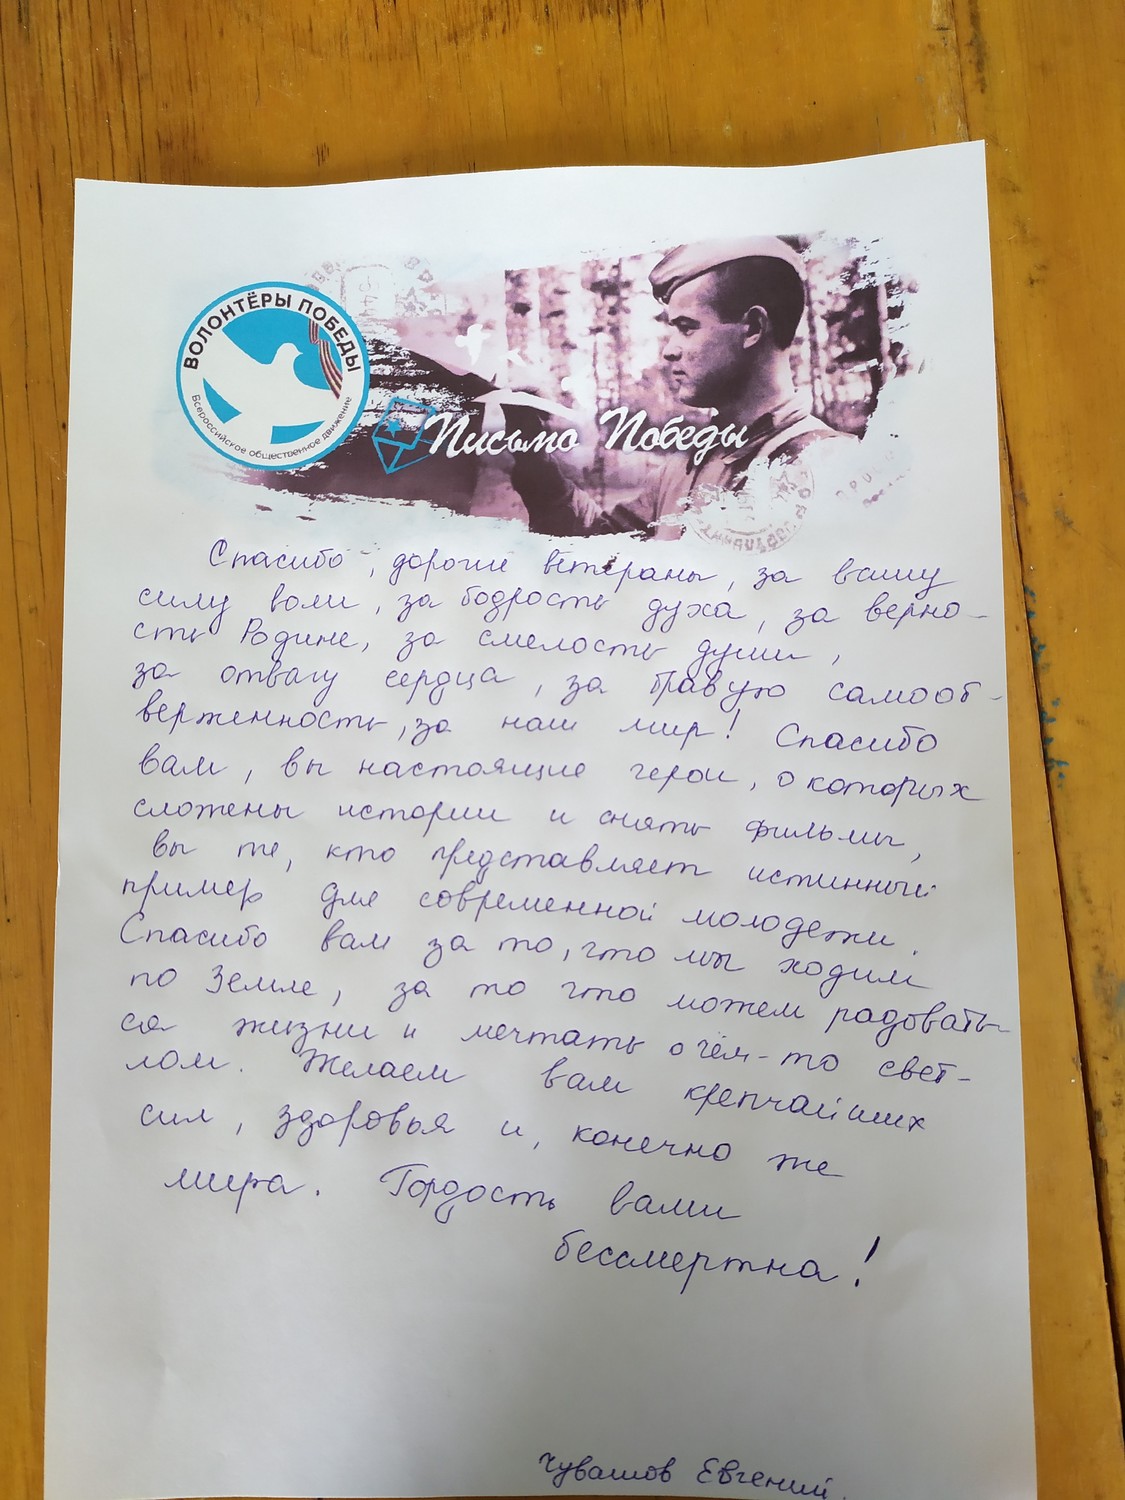 ВОЛОНТЁРЫ ПОБЕДЫ
Всероссийское общественное движение
Письмо Победы
Спасибо, дорогие ветераны, за вашу
силу воли, за бодрость духа, за верно-
сть Родине, за смелость души,
за отвагу сердца, за бравую самоот-
верженность, за наш мир! Спасибо
вам, вы настоящие герои, о которых
сложены истории и сняты фильмы,
вы те, кто представляет истинный
пример для современной молодежи.
Спасибо вам за то, что мы ходим
по Земле, за то что можем радовать-
ся жизни и мечтать о чём-то свет-
лом. Желаем вам крепчайших
сил, здоровья и, конечно же
мира. Гордость вами
бессмертна!
Чувашов Евгений.